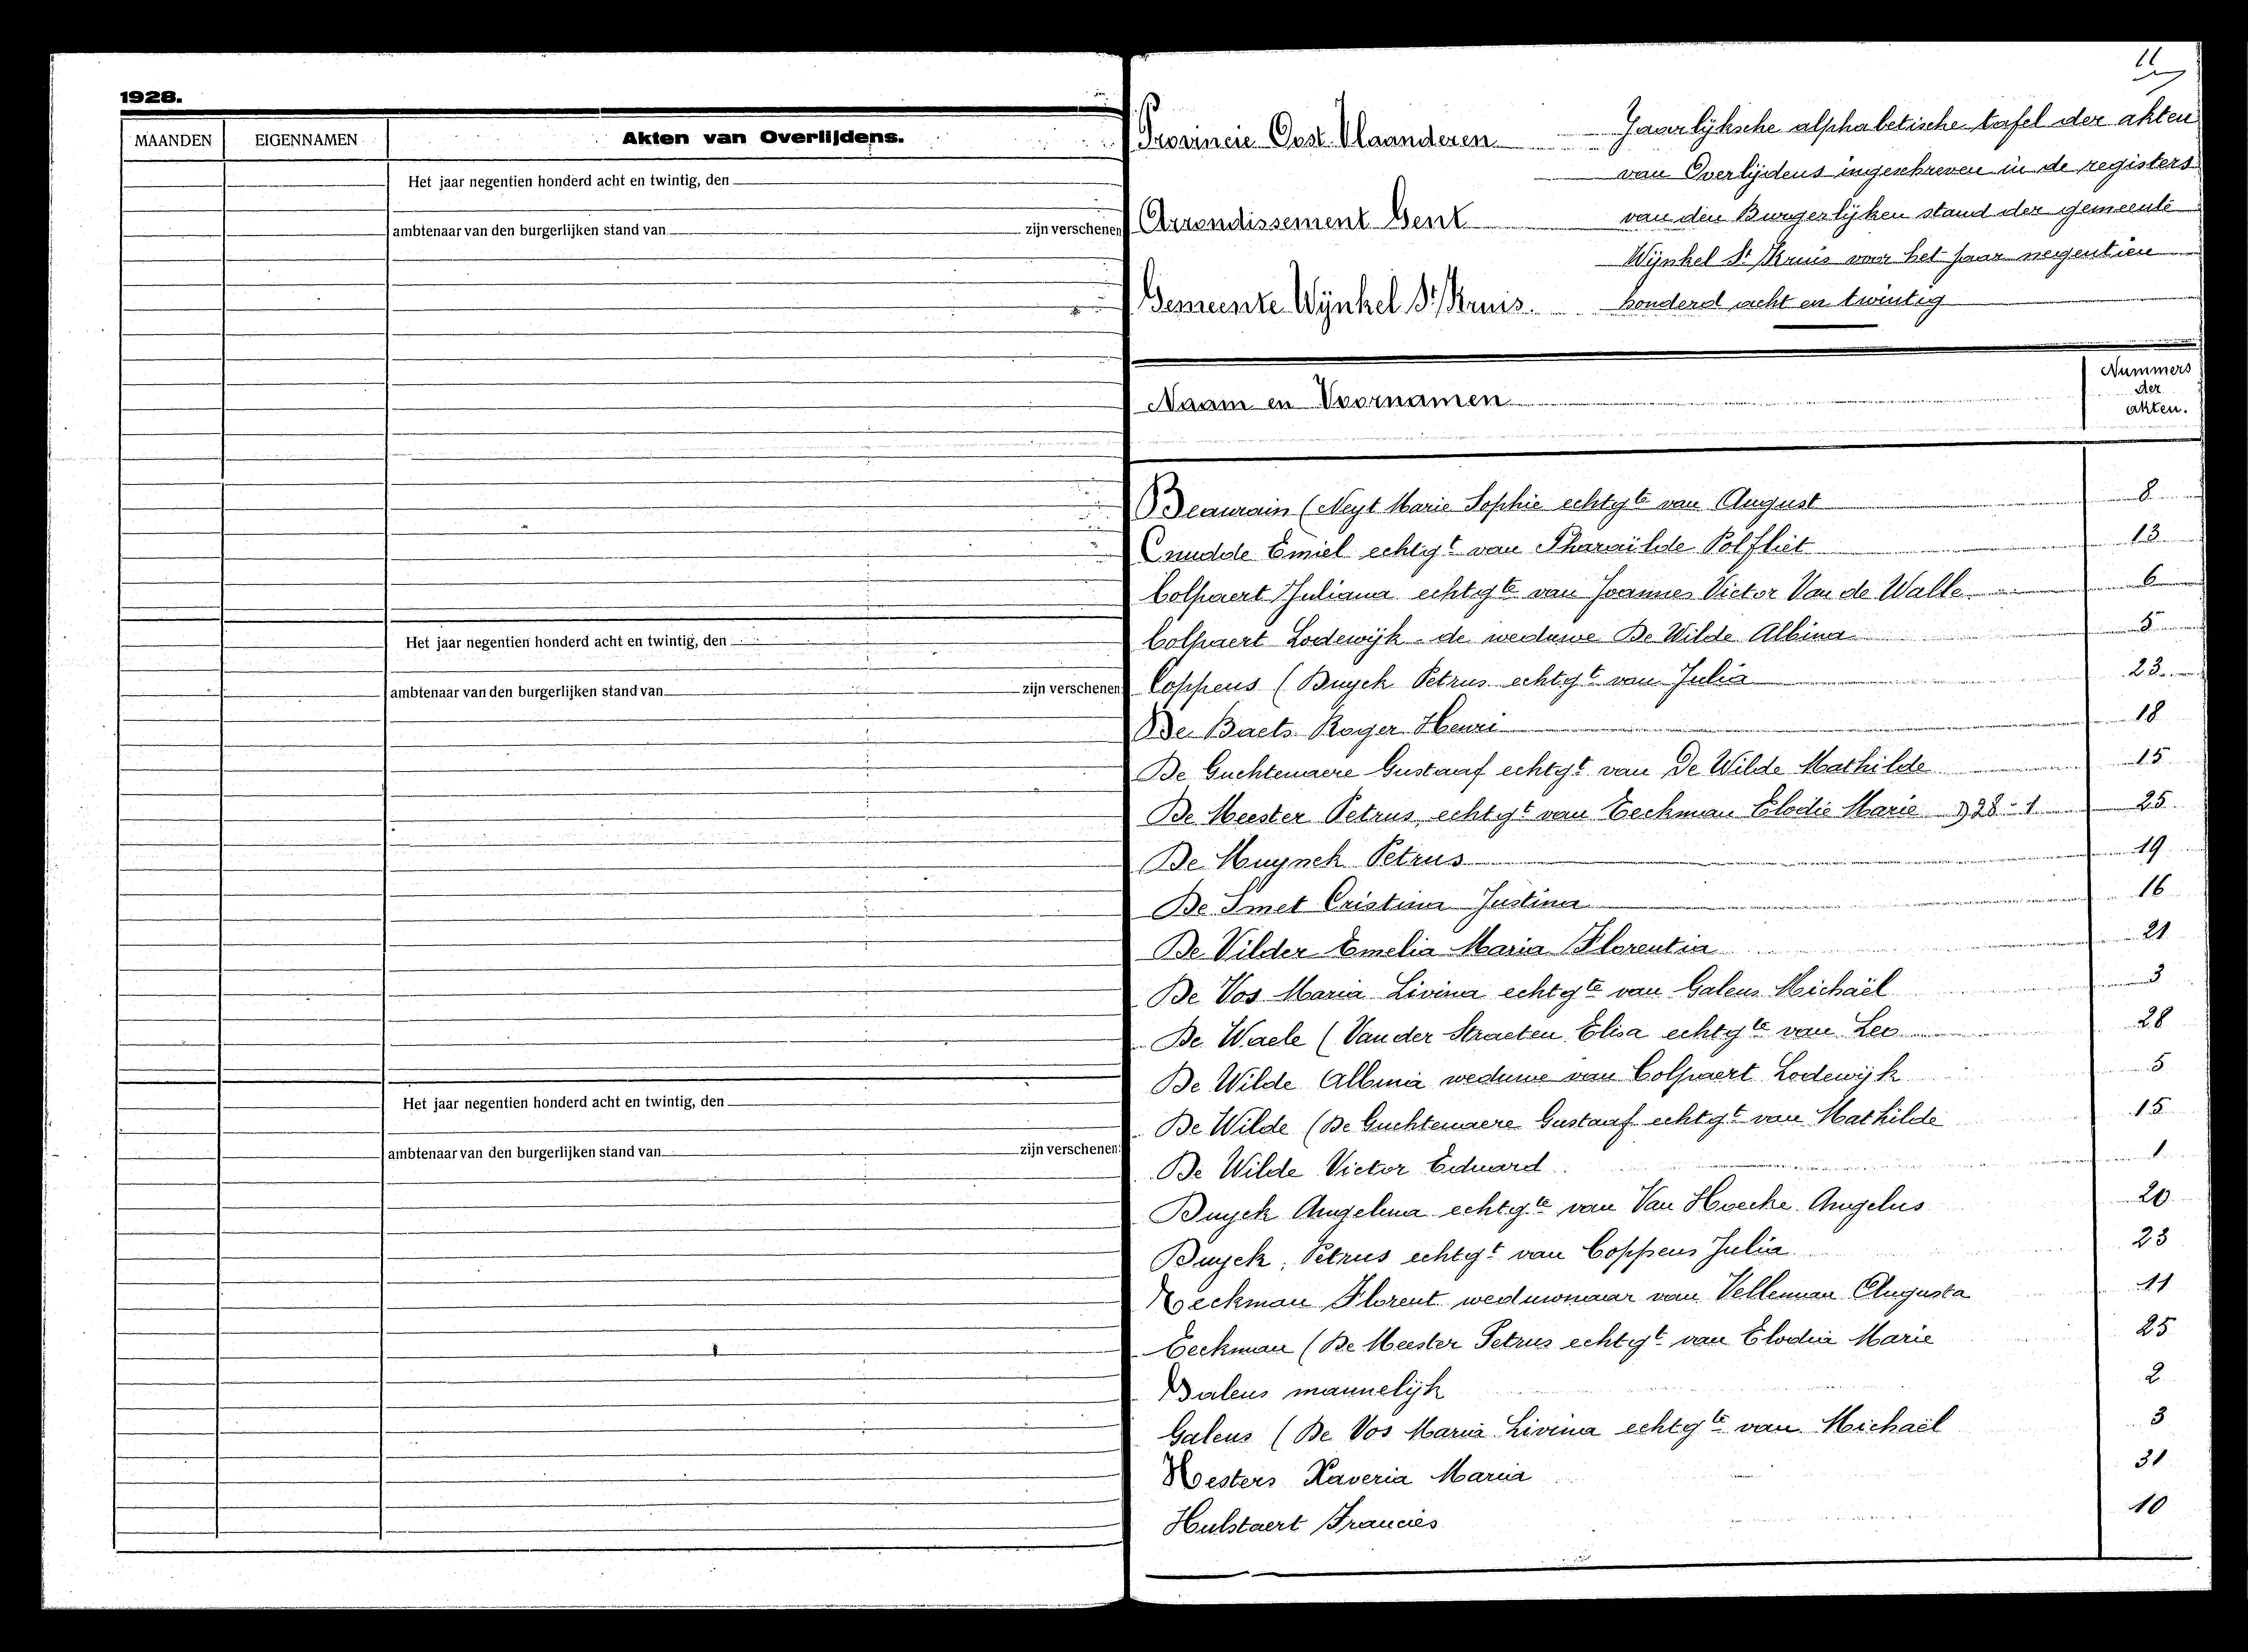 1928.
MAANDEN
EIGENNAMEN
Akten van Overlijdens.
Het jaar negentien honderd acht en twintig, den
ambtenaar van den burgerlijken stand van zijn verschenen
Het jaar negentien honderd acht en twintig, den
ambtenaar van den burgerlijken stand van zijn verschenen
Het jaar negentien honderd acht en twintig, den
ambtenaar van den burgerlijken stand van zijn verschenen
11
Provincie Oost Vlaanderen
Arrondissement Gent
Gemeente Wijnkel St Kruis.
Jaarlijksche alphabetische tafel der akten
van Overlijdens ingeschreven in de registers
van den Burgerlijken stand der gemeente
Wijnkel St Kruis voor het jaar negentien
honderd acht en twintig
Naam en Voornamen
Nummers
der
akten.
Beaurain (Neyt Marie Sophie echtgte van August 8
Cnudde Emiel echtgt van Pharaïlde Polfliet 13
Colpaert Juliana echtgte van Joannes Victor Van de Walle 6
Colpaert Lodewijk de weduwe De Wilde Albina 5
Coppens (Buyck Petrus echtgt van Julia 23
De Baets Roger Henri 18
De Guchtenaere Gustaaf echtgt van De Wilde Mathilde 15
De Meester Petrus echtgt van Eeckman Elodie Marie 928-1 25
De Muynck Petrus 19
De Smet Cristina Justina 16
De Vilder Emelia Maria Florentia 21
De Vos Maria Livina echtgte van Galens Michaël 3
De Waele (Van der Straeten Elisa echtgte van Leo 28
De Wilde Albina weduwe van Colpaert Lodewijk 5
De Wilde (De Guchtenaere Gustaaf echtgt van Mathilde 15
De Wilde Victor Eduard 1
Buyck Angelina echtgte van Van Hoecke Angelus 20
Buyck, Petrus echtgt van Coppens Julia 23
Eeckman Florent weduwnaar van Velleman Augusta 11
Eeckman (De Meester Petrus echtgt van Elodia Marie 25
Galens mannelijk 2
Galens (De Vos Maria Livina echtgte van Michaël 3
Hoesters Xaveria Maria 31
Hulstaert Francies 10